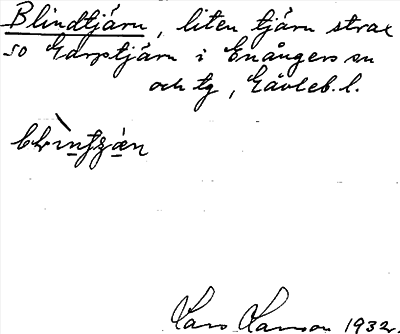 Blindtjärn, liten tjärn strax
so Garptjärn i Enångers sn
och tg, Gävleb. l.
Lars Hanson 1932.